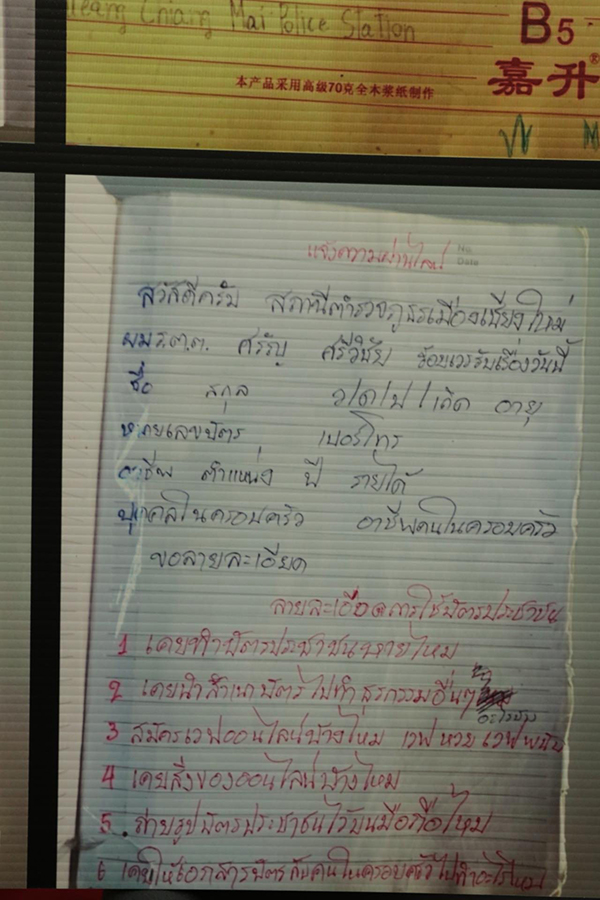 Chiang Mai Police Station
B5
本产品采用高级70克全木浆纸制作
嘉升®
แจ้งความผ่านไลน์
No.
Date
สวัสดีครับ สถานีตำรวจภูธรเมืองเชียงใหม่
ผม ร.ต.ต. ศรัญ ศรีวิชัย ร้อยเวรรับเรื่องวันนี้
ชื่อ สกุล ว/ด/ป/เกิด อายุ
หมายเลขบัตร เบอร์โทร
อาชีพ ตำแหน่ง ปี รายได้
บุคคลในครอบครัว อาชีพคนในครอบครัว
ขอลายละเอียด
ลายละเอียดการใช้บัตรประชาชน
1 เคยทำบัตรประชาชนหายไหม
2 เคยนำสำเนาบัตรไปทำธุรกรรมอื่นๆ
อะไรบ้าง
3 สมัครเวฟออนไลน์บ้างไหม เวฟหวย เวฟพนัน
4 เคยสั่งของออนไลน์บ้างไหม
5. ถ่ายรูปบัตรประชาชนไว้บนมือถือไหม
6 เคยให้เอกสารบัตรกับคนในครอบครัวไปทำอะไรไหม